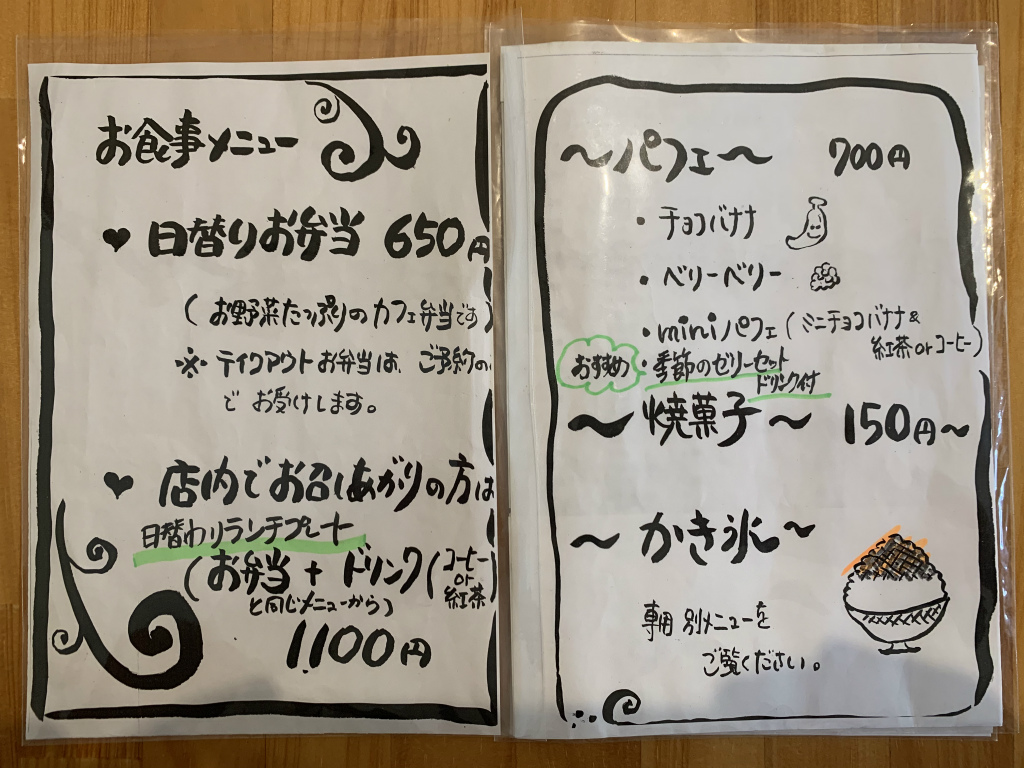 お食事メニュー
♥ 日替りお弁当 650円
(お野菜たっぷりのカフェ弁当です)
※ テイクアウトお弁当は、ご予約の
で お受けします。
♥ 店内でお召しあがりの方は
日替わりランチプレート
(お弁当 + ドリンク(コーヒー
or
紅茶)
と同じメニューから)
1,100円
〜パフェ〜 700円
・チョコバナナ
・ベリーベリー
・miniパフェ(ミニチョコバナナ&
紅茶orコーヒー)
おすすめ ・季節のゼリーセット
ドリンク付
〜焼菓子〜 150円〜
〜かき氷〜
専用 別メニューを
ご覧ください。